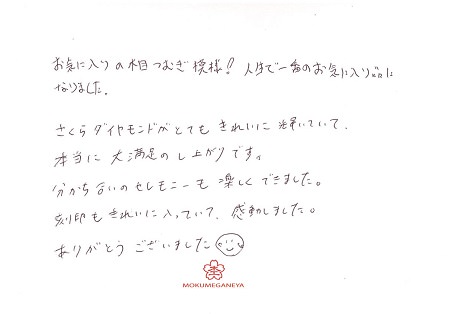 お気に入りの木目つむぎ模様! 人生で一番のお気に入り品に
なりました。
さくらダイヤモンドがとてもきれいに輝いていて、
本当に大満足のし上がりです。
分かち合いのセレモニーも楽しくできました。
刻印もきれいに入っていて、感動しました。
ありがとうございました
MOKUMEGANEYA